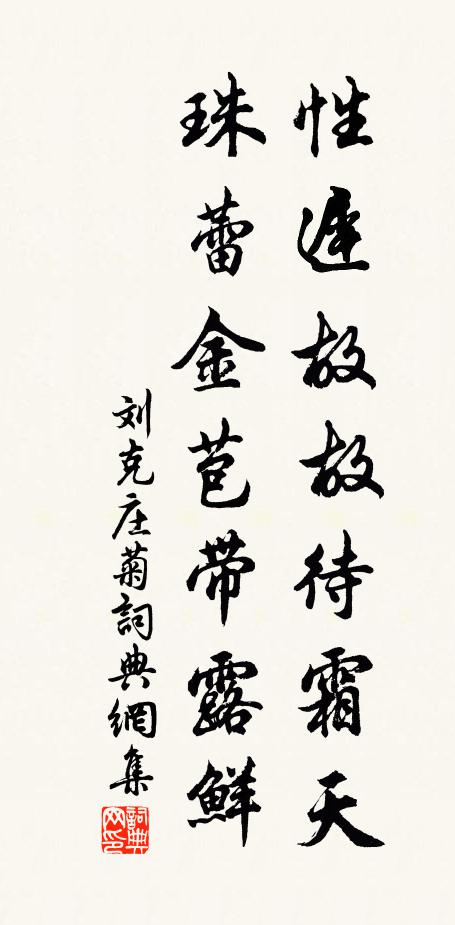 性遲故故待霜天
珠蕾金苞帶露鮮
刘克庄菊詞典網集
詞典网印